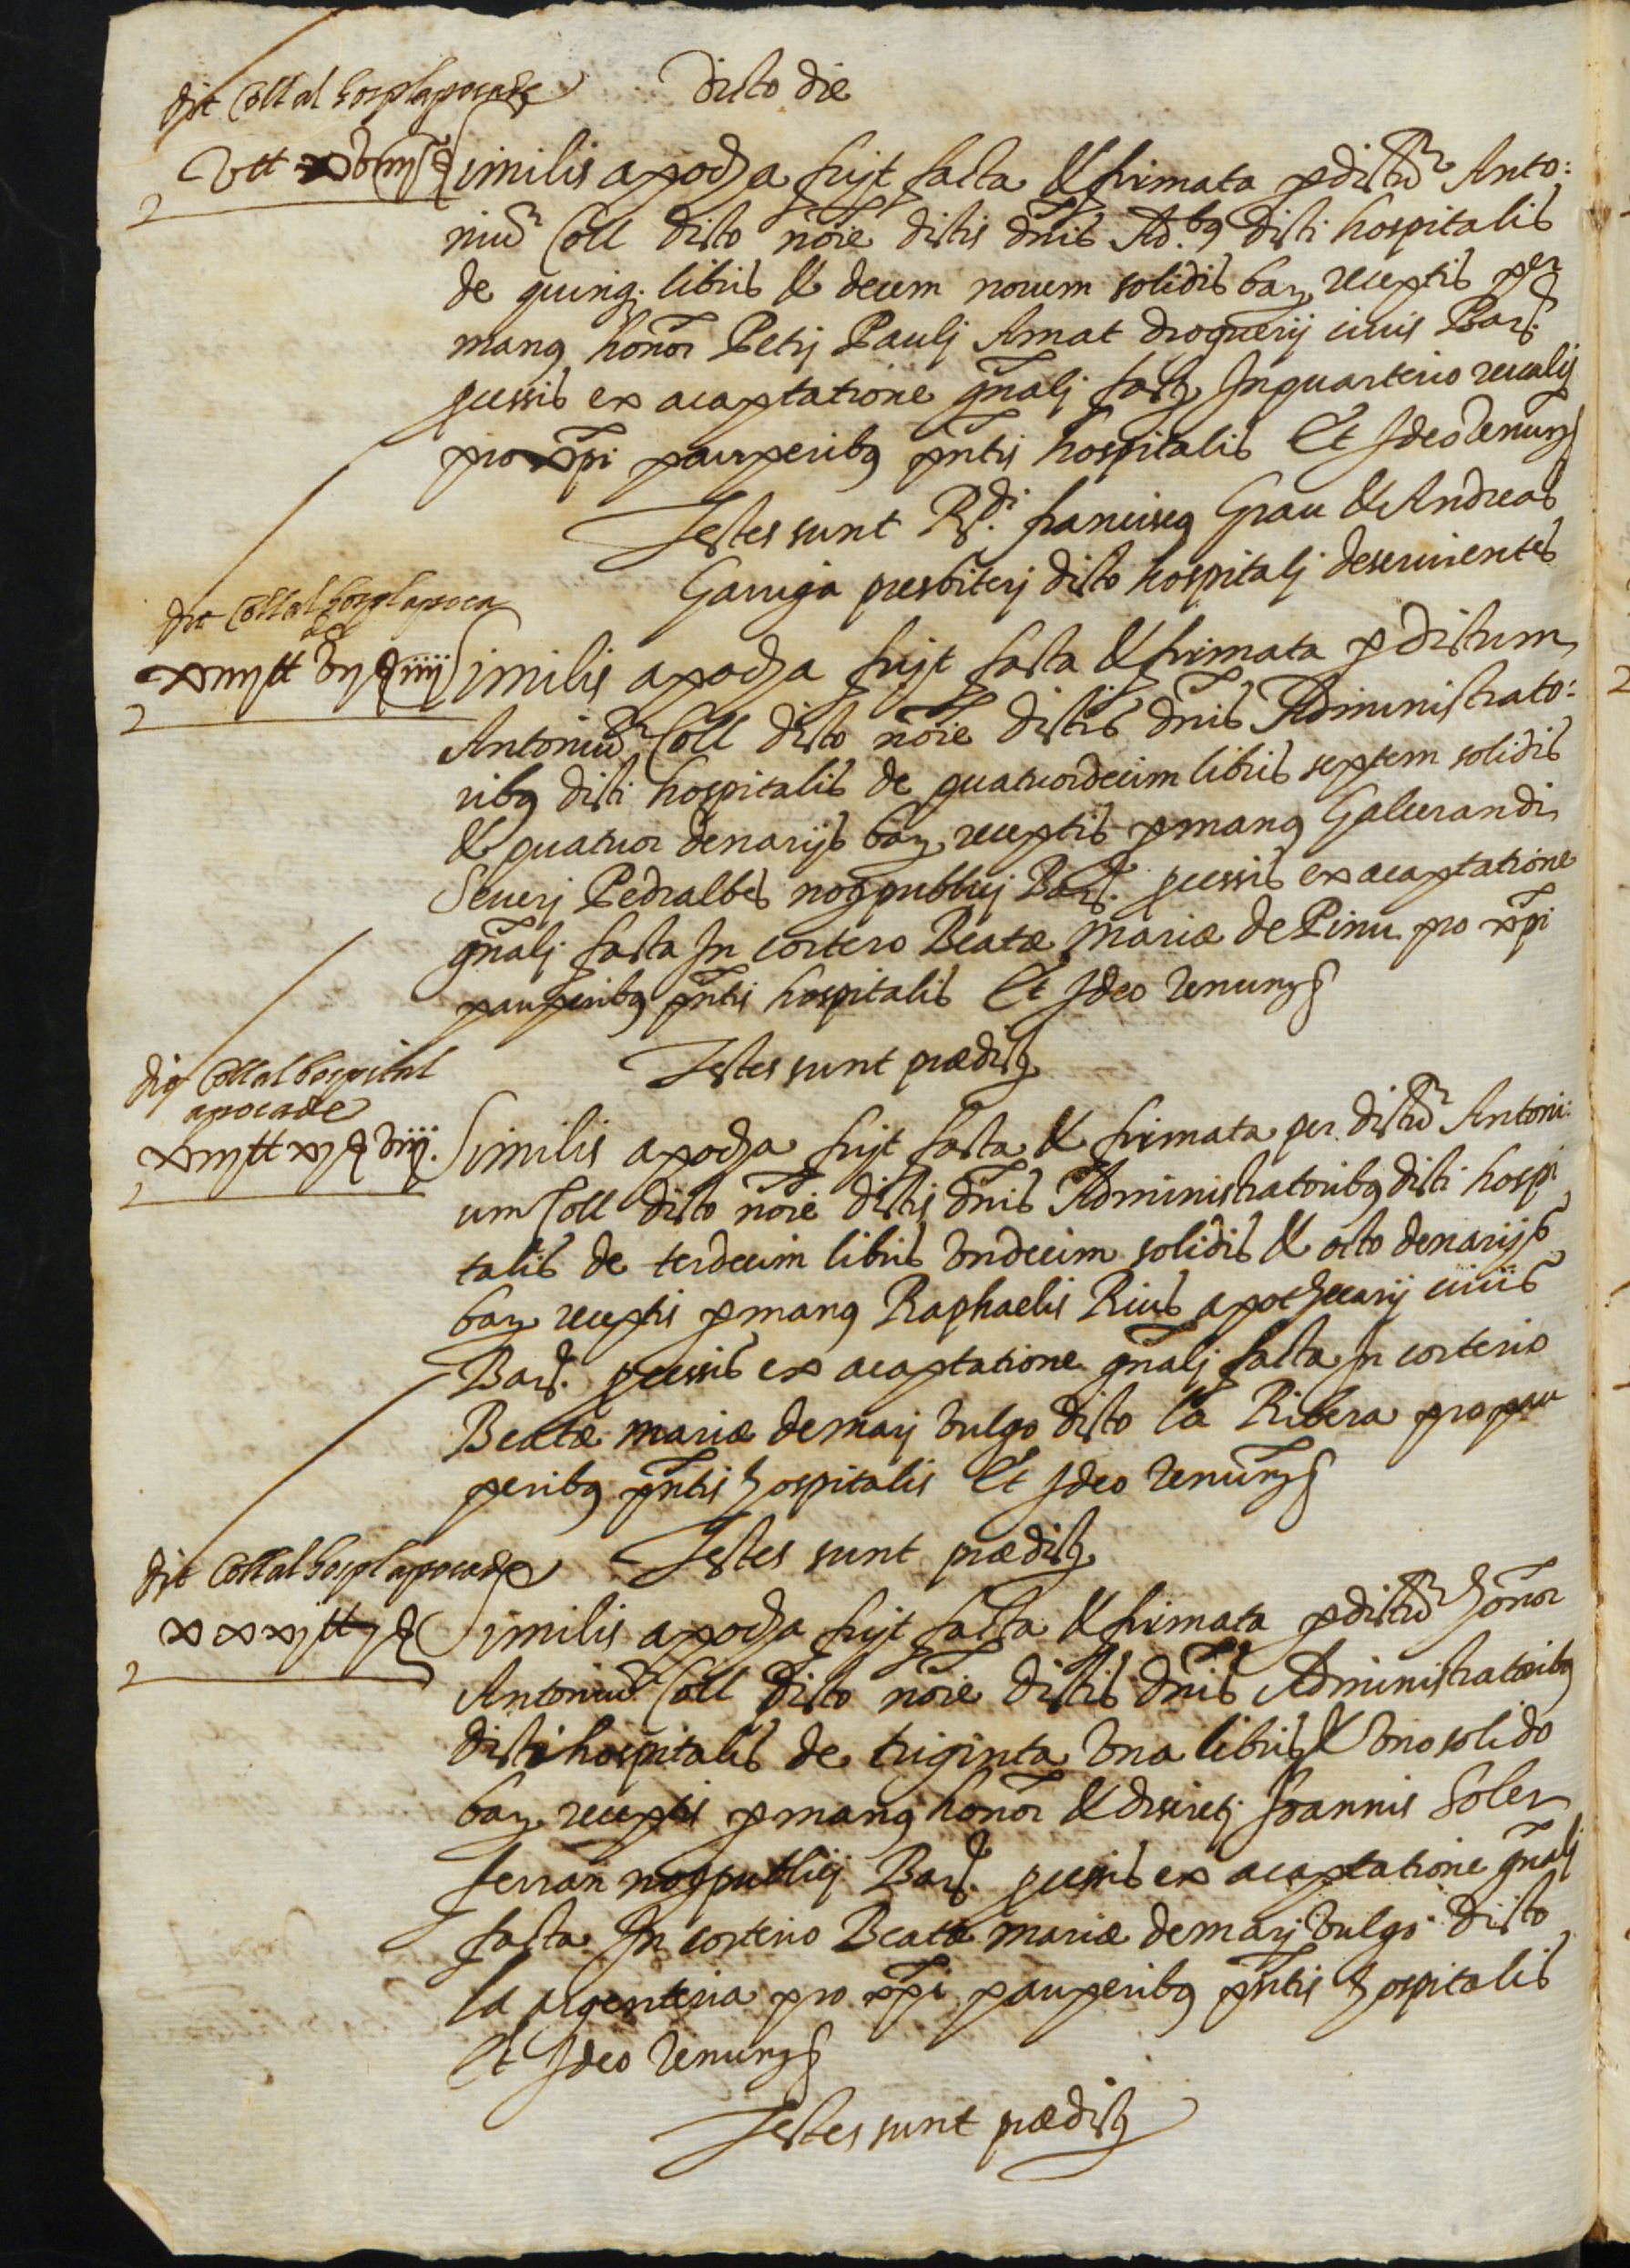 Dicto die
dit Coll al hospl apoca de
Similis apocha fuit facta & firmata p dictu Anto:
niu Coll dicto noie dictis dnis Ad.bq dicti hospitalis
de quinq. libris & decem novem solidis bar receptis per
manq honor Petri Pauli Amat droguerij civis Bar.
pcessis ex acaptatione gnali facta In quarterio
pro xpi pauperibq pntis hospitalis Et Ideo renun
Testes sunt R.di franciscq Grau & Andreas
Garriga presbiteri dicto hospitali deservientes
dit Coll al hospl apoca
de
xiiij tt vij s iiij Similis apocha fuit facta & firmata p dictum
Antoniu Coll dicto noie dictis dnis Administrato:
ribq dicti hospitalis de quatuordecim libris septem solidis
& quatuor denarijs bar receptis p manq Galcerandi
Severi Pedralbes not publici Bar. pcessis ex acaptatione
gnali facta In cortero Beatæ Mariæ de Pinu pro xpi
pauperibq pntis hospitalis Et Ideo renun
Testes sunt prædict
dit Coll al hospital
apoca de
xiij tt xj s viij. Similis apocha fuit facta & firmata per dictu Antoni:
um Coll dicto noie dictis dnis Administratoribq dicti hospi
talis de terdecim libris undecim solidis & octo denarijs
bar receptis p manq Raphaelis Rius apothecarij civis
Bar. pcessis ex acaptatione gnali facta In corterio
Beatæ mariæ de mari vulgo dicto la Ribera pro pau
peribq pntis hospitalis Et Ideo renun
Testes sunt prædict
dit Coll al hospl apoca de
xxxj tt j s Similis apocha fuit facta & firmata p dictu honor
Antoniu Coll dicto noie dictis dnis Administratoribq
dicti hospitalis de triginta una libris & uno solido
bar receptis p manq honor & discreti Joannis Soler
ferran not publici Bar. pcessis ex acaptatione gnali
facta In corterio Beatæ mariæ de mari vulgo dicto
la argenteria pro xpi pauperibq pntis hospitalis
Et Ideo renun
Testes sunt prædict